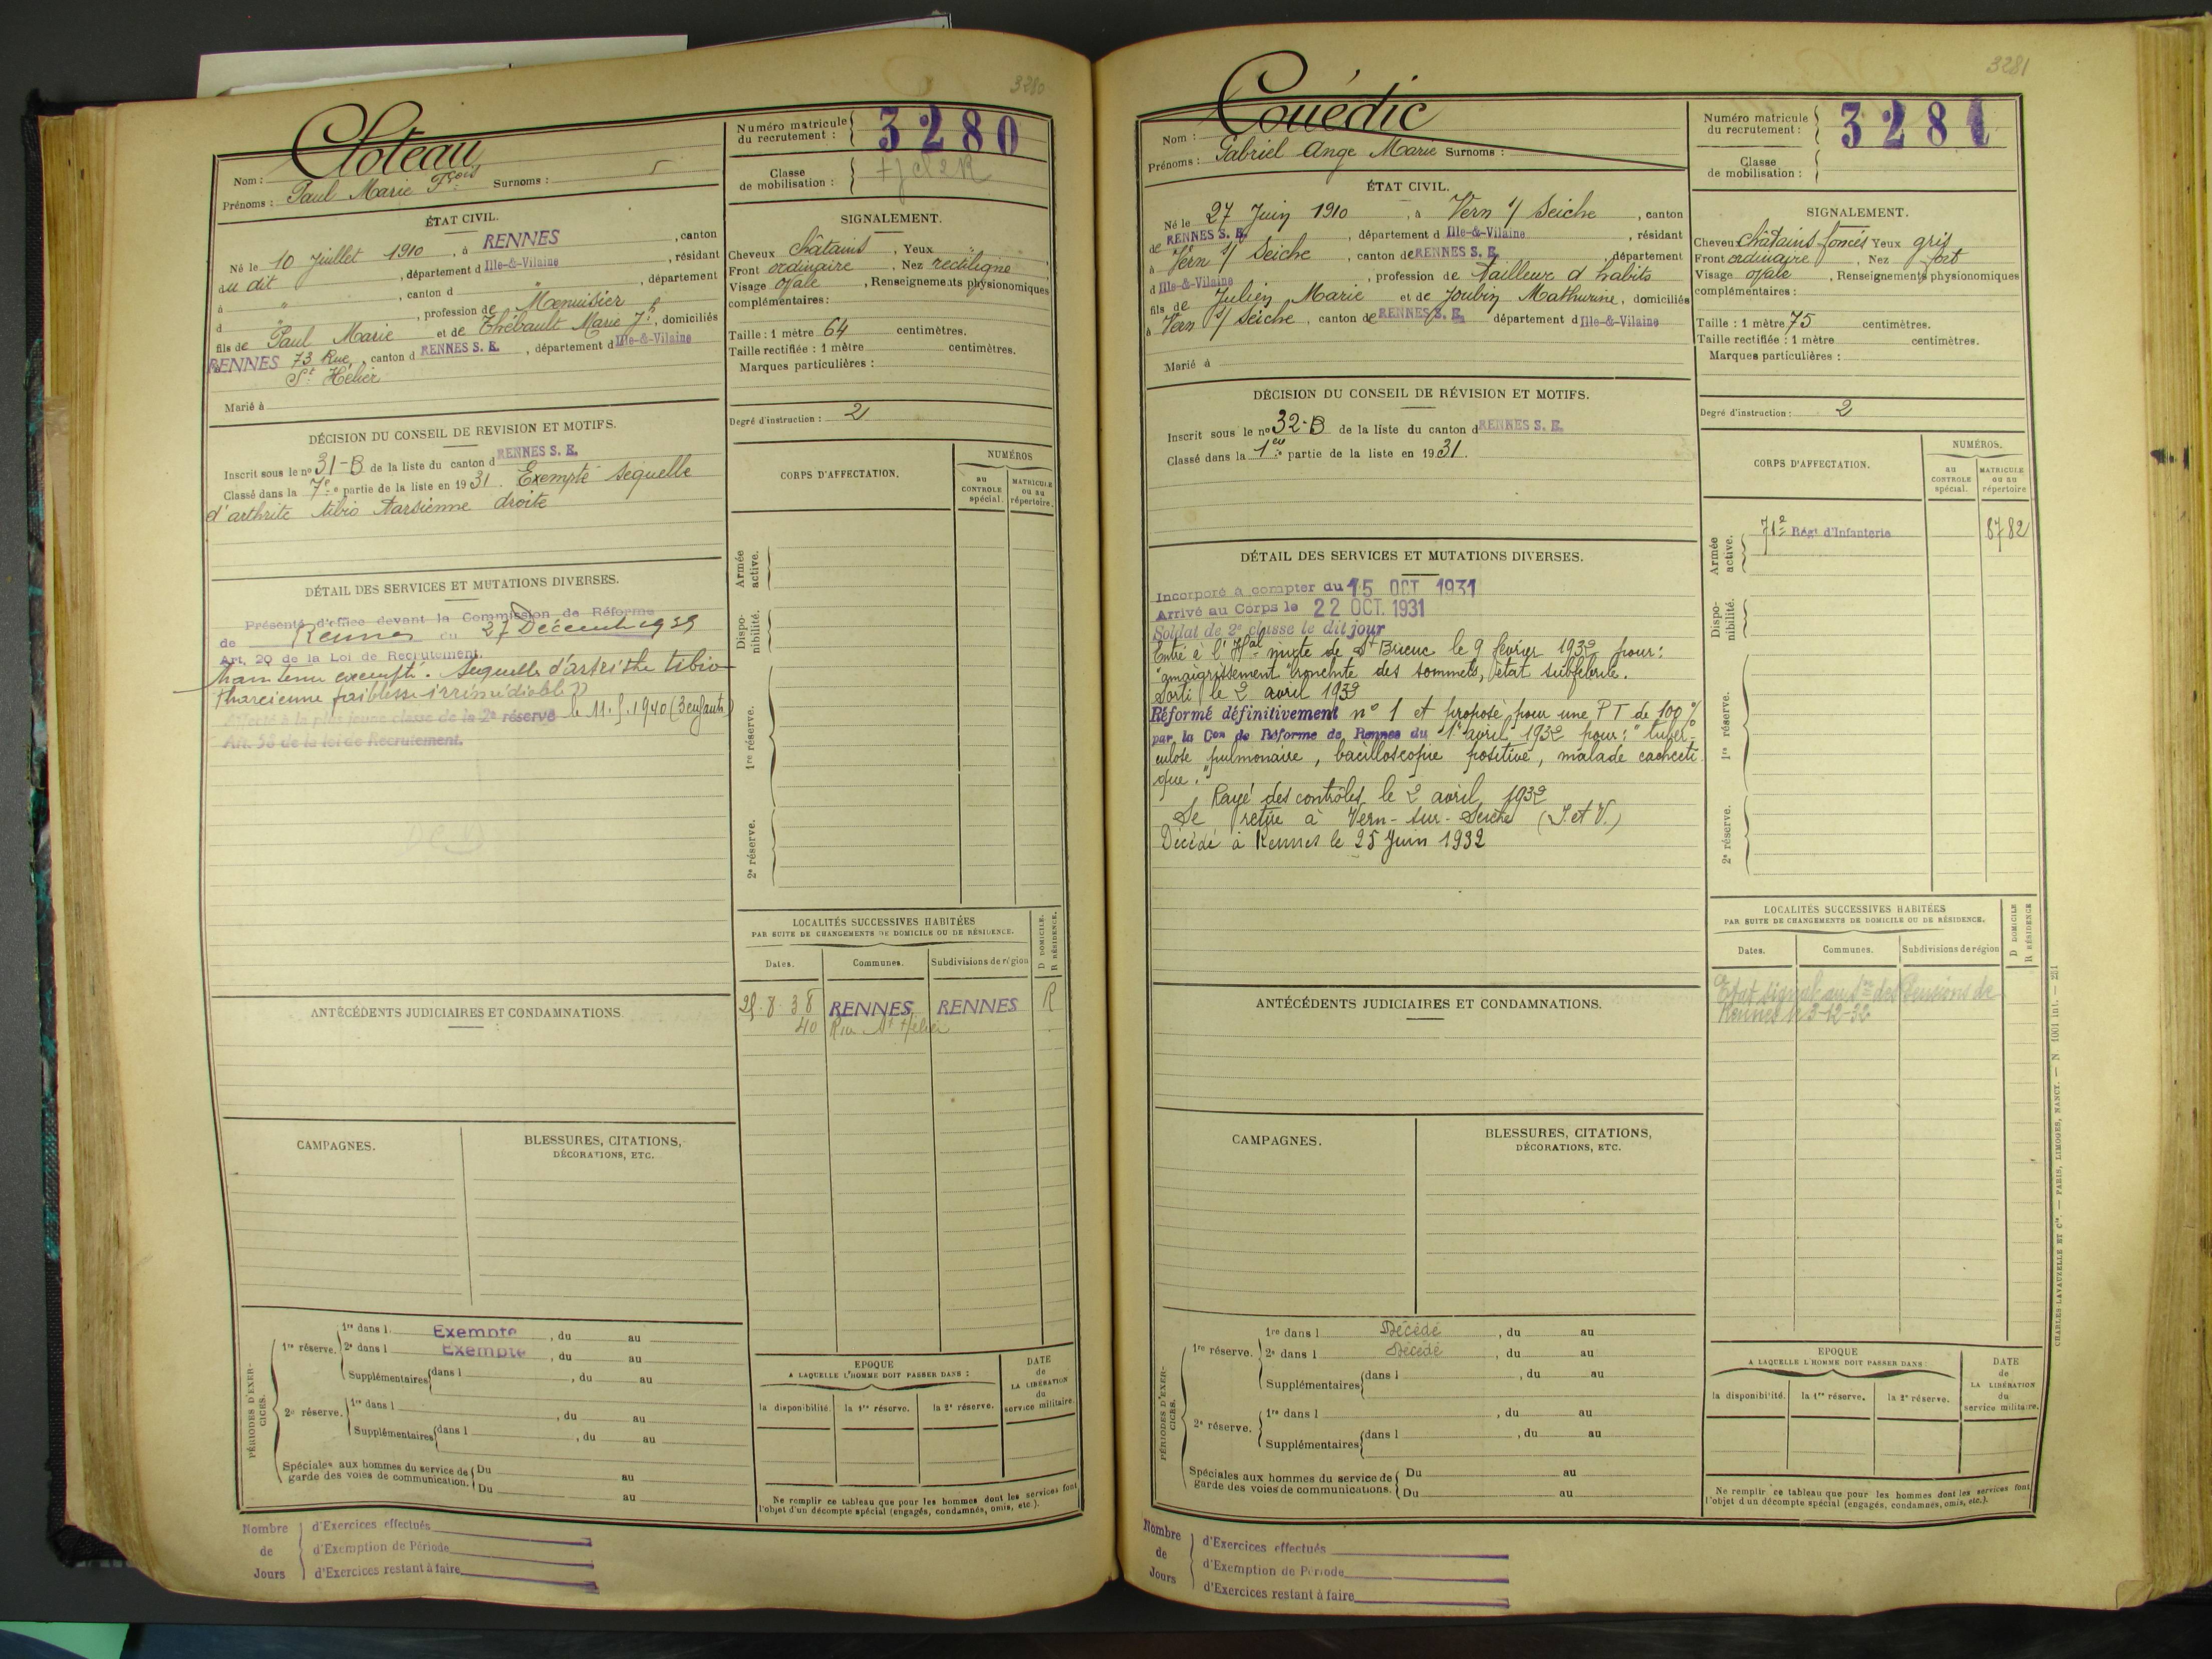 3280
Cloteau
Nom :
Prénoms : Paul Marie Fçois Surnoms :
Numéro matricule du recrutement : 3280
Classe de mobilisation :
ÉTAT CIVIL.
Né le 10 Juillet 1910, à RENNES, canton
du dit, département d Ille-&-Vilaine, résidant
à ", canton d ", département
d ", profession de Menuisier
fils de Paul Marie et de Thébault Marie Jh, domiciliés
à RENNES 73 Rue, canton d RENNES S. E., département d Ille-&-Vilaine
St Hélier
Marié à
SIGNALEMENT.
Cheveux châtains, Yeux "
Front ordinaire, Nez rectiligne
Visage ovale, Renseignements physionomiques
complémentaires :
Taille : 1 mètre 64 centimètres.
Taille rectifiée : 1 mètre centimètres.
Marques particulières :
Degré d'instruction : 2
DÉCISION DU CONSEIL DE REVISION ET MOTIFS.
Inscrit sous le no 31-B de la liste du canton d RENNES S. E.
Classé dans la 7e partie de la liste en 1931. Exempté sequelle
d'arthrite tibio tarsienne droite
DÉTAIL DES SERVICES ET MUTATIONS DIVERSES.
Présenté d'office devant la Commission de Réforme
de Rennes du 27 Décembre 1939
Art. 20 de la Loi de Recrutement.
Maintenu exempté. Sequelle d'artrithe tibio
tharcienne faiblesse irrémédiable »
Affecté à la plus jeune classe de la 2e réserve le 11.5.1940 (3 enfants)
Art. 58 de la loi de Recrutement.
CORPS D'AFFECTATION.
NUMÉROS
au CONTROLE spécial.
MATRICULE ou au répertoire.
Armée active.
Dispo-nibilité.
1re réserve.
2e réserve.
LOCALITÉS SUCCESSIVES HABITÉES
PAR SUITE DE CHANGEMENTS DE DOMICILE OU DE RÉSIDENCE.
D DOMICILE.
R RÉSIDENCE.
Dates. Communes. Subdivisions de région
8.38 RENNES RENNES R
40 Rue St Hélier
ANTÉCÉDENTS JUDICIAIRES ET CONDAMNATIONS
CAMPAGNES.
BLESSURES, CITATIONS,
DÉCORATIONS, ETC.
PÉRIODES D'EXER-CICES.
1re réserve. 1re dans l Exempté, du au
2e dans l Exempté, du au
Supplémentaires dans l, du au
2e réserve. 1re dans l, du au
Supplémentaires dans l, du au
Spéciales aux hommes du service de garde des voies de communication. Du au
Du au
EPOQUE
A LAQUELLE L'HOMME DOIT PASSER DANS :
la disponibilité. la 1re réserve. la 2e réserve.
DATE de LA LIBÉRATION du service militaire.
Ne remplir ce tableau que pour les hommes dont les services font
l'objet d'un décompte spécial (engagés, condamnés, omis, etc.).
Nombre de Jours
d'Exercices effectués
d'Exemption de Période
d'Exercices restant à faire
3281
Couédic
Nom :
Prénoms : Gabriel Ange Marie Surnoms :
Numéro matricule du recrutement : 3281
Classe de mobilisation :
ÉTAT CIVIL.
Né le 27 Juin 1910, à Vern s/ Seiche, canton
de RENNES S. E., département d Ille-&-Vilaine, résidant
à Vern s/ Seiche, canton de RENNES S. E., département
d Ille-&-Vilaine, profession de Tailleur d habits
fils de Julien Marie et de Joubin Mathurine, domiciliés
à Vern s/ Seiche, canton de RENNES S. E. département d Ille-&-Vilaine
Marié à
SIGNALEMENT.
Cheveux châtains foncés Yeux gris
Front ordinaire, Nez fort
Visage ovale, Renseignements physionomiques
complémentaires :
Taille : 1 mètre 75 centimètres.
Taille rectifiée : 1 mètre centimètres.
Marques particulières :
Degré d'instruction : 2
DÉCISION DU CONSEIL DE RÉVISION ET MOTIFS.
Inscrit sous le no 32-B de la liste du canton d RENNES S. E.
Classé dans la 1re partie de la liste en 1931.
DÉTAIL DES SERVICES ET MUTATIONS DIVERSES.
Incorporé à compter du 15 OCT 1931
Arrivé au Corps le 22 OCT. 1931
Soldat de 2e classe le dit jour
Entré à l'Hal mixte de St Brieuc le 9 février 1932 pour :
"amaigrissement bronchite des sommets, état subfébrile.
Sorti le 2 avril 1932
Réformé définitivement n° 1 et proposé pour une PT de 100%
par la Con de Réforme de Rennes du 1er avril 1932 pour : "tuber-
culose pulmonaire, bacilloscopie positive, malade cachecti-
que."
Rayé des contrôles le 2 avril 1932
Se retire à Vern-sur-Seiche (I. et V.)
Décédé à Rennes le 25 Juin 1932
CORPS D'AFFECTATION.
NUMÉROS.
au CONTROLE spécial.
MATRICULE ou au répertoire
Armée active. 71e Régt d'Infanterie 8782
Dispo-nibilité.
1re réserve.
2e réserve.
LOCALITÉS SUCCESSIVES HABITÉES
PAR SUITE DE CHANGEMENTS DE DOMICILE OU DE RÉSIDENCE.
D DOMICILE
R RÉSIDENCE
Dates. Communes. Subdivisions de région
Etat signal. au Sce des Pensions de
Rennes le 3-12-32
ANTÉCÉDENTS JUDICIAIRES ET CONDAMNATIONS.
CAMPAGNES.
BLESSURES, CITATIONS,
DÉCORATIONS, ETC.
PÉRIODES D'EXER-CICES.
1re réserve. 1re dans l Décédé, du au
2e dans l Décédé, du au
Supplémentaires dans l, du au
2e réserve. 1re dans l, du au
Supplémentaires dans l, du au
Spéciales aux hommes du service de garde des voies de communications. Du au
Du au
EPOQUE
A LAQUELLE L'HOMME DOIT PASSER DANS :
la disponibilité. la 1re réserve. la 2e réserve.
DATE de LA LIBÉRATION du service militaire.
Ne remplir ce tableau que pour les hommes dont les services font
l'objet d'un décompte spécial (engagés, condamnés, omis, etc.).
CHARLES-LAVAUZELLE ET Cie. — PARIS, LIMOGES, NANCY. — N. 1001 init. — 221
Nombre de Jours
d'Exercices effectués
d'Exemption de Période
d'Exercices restant à faire